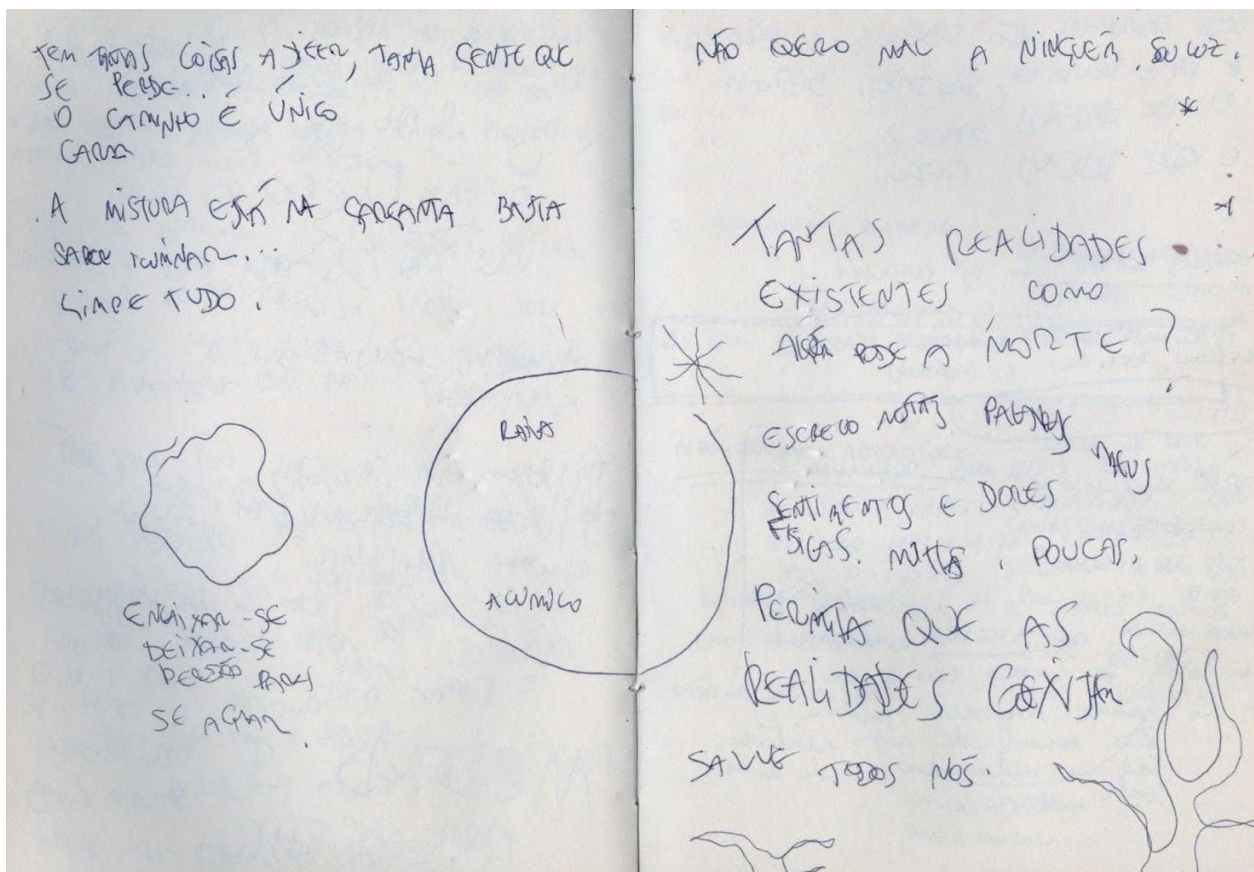 TEM TANTAS COISAS A DIZER, TANTA GENTE QUE
SE PERDE...
O CAMINHO É ÚNICO
. A MISTURA ESTÁ NA GARGANTA BASTA
SABER
LIMPE TUDO.
RAIVA
ENCAIXAR-SE
DEIXAR-SE
PERDÃO PARA
SE
NÃO QUERO MAL A NINGUÉM. SOU LUZ.
*
TANTAS REALIDADES
EXISTENTES COMO
ALGUÉM PODE A MORTE?
ESCREVO NESTAS PAGINAS
MEUS
SENTIMENTOS E DORES
FÍSICAS. MUITAS. POUCAS.
PERMITA QUE AS
REALIDADES
SALVE TODOS NÓS.